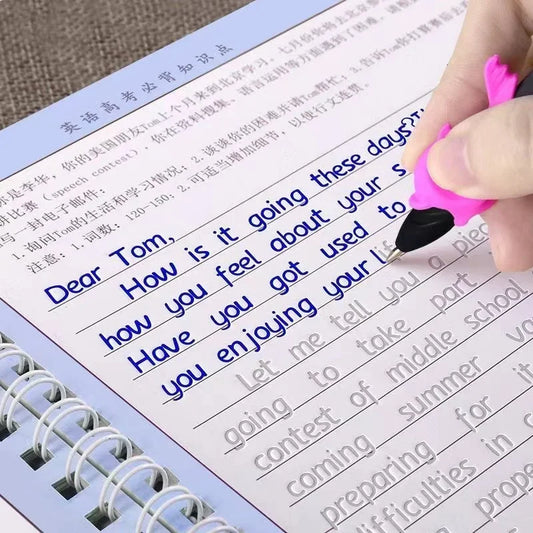 英语高考必背知识点
你是李华，你的美国朋友Tom上个月来到北京学习。七月份你将去北京参
讲比赛 (speech contest)，你在资料搜集、语言运用等方面遇到了困难，请
写一封电子邮件：
1. 询问Tom的生活和学习情况；2. 谈谈你的困难并请Tom帮忙；3. 告诉Tom你打算赛后去
注意：1. 词数：120-150；2. 可适当增加细节，以使行文连贯。
Dear Tom,
How is it going these days?
how you feel about your s
Have you got used to
you enjoying your li
Let me tell you a piece
going to take part
contest of middle school
coming summer va
preparing for it
difficulties in c
prope